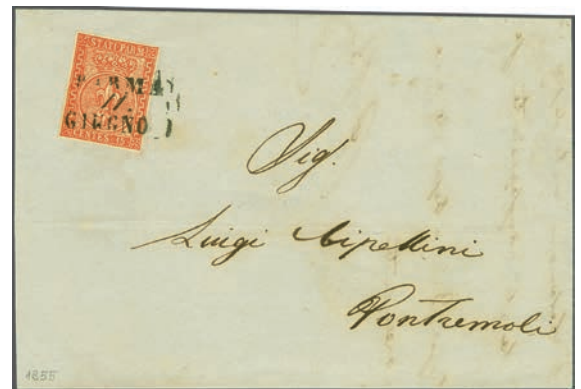 STATI PARM
PARMA
11
GIUGNO
CENTES. 15
Sig.
Luigi Cipellini
Pontremoli
1855